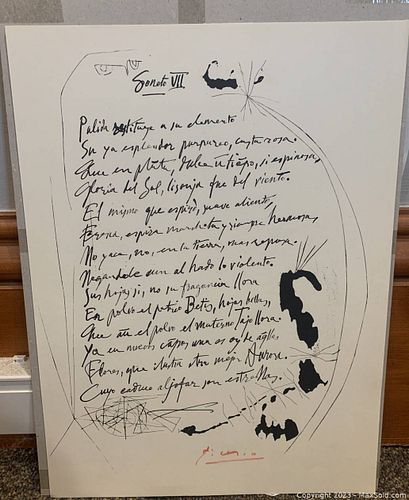 Soneto VII
Pálida restituye a su elemento
Su ya esplendor purpureo, casta rosa.
Que en planta, dulce un tiempo, si espinosa,
Gloria del Sol, lisonja fue del viento.
El mismo que espiró, suave aliento,
Fresca, espira marchita y siempre hermosa,
No yace, no, en la tierra, mas reposa
Negandole aun al hado lo violento.
Sus hojas si, no su fragancia llora
En polvo el patrio Betis, hojas bellas,
Que aun el polvo el materno Tajo llora.
Ya en nuevos campos una es oy de aqllas
Flores, que ilustra otra mejor Aurora.
Cuyo caduco aljofar son estrellas.
Picasso
Copyright © 2023 - MaxSold.com